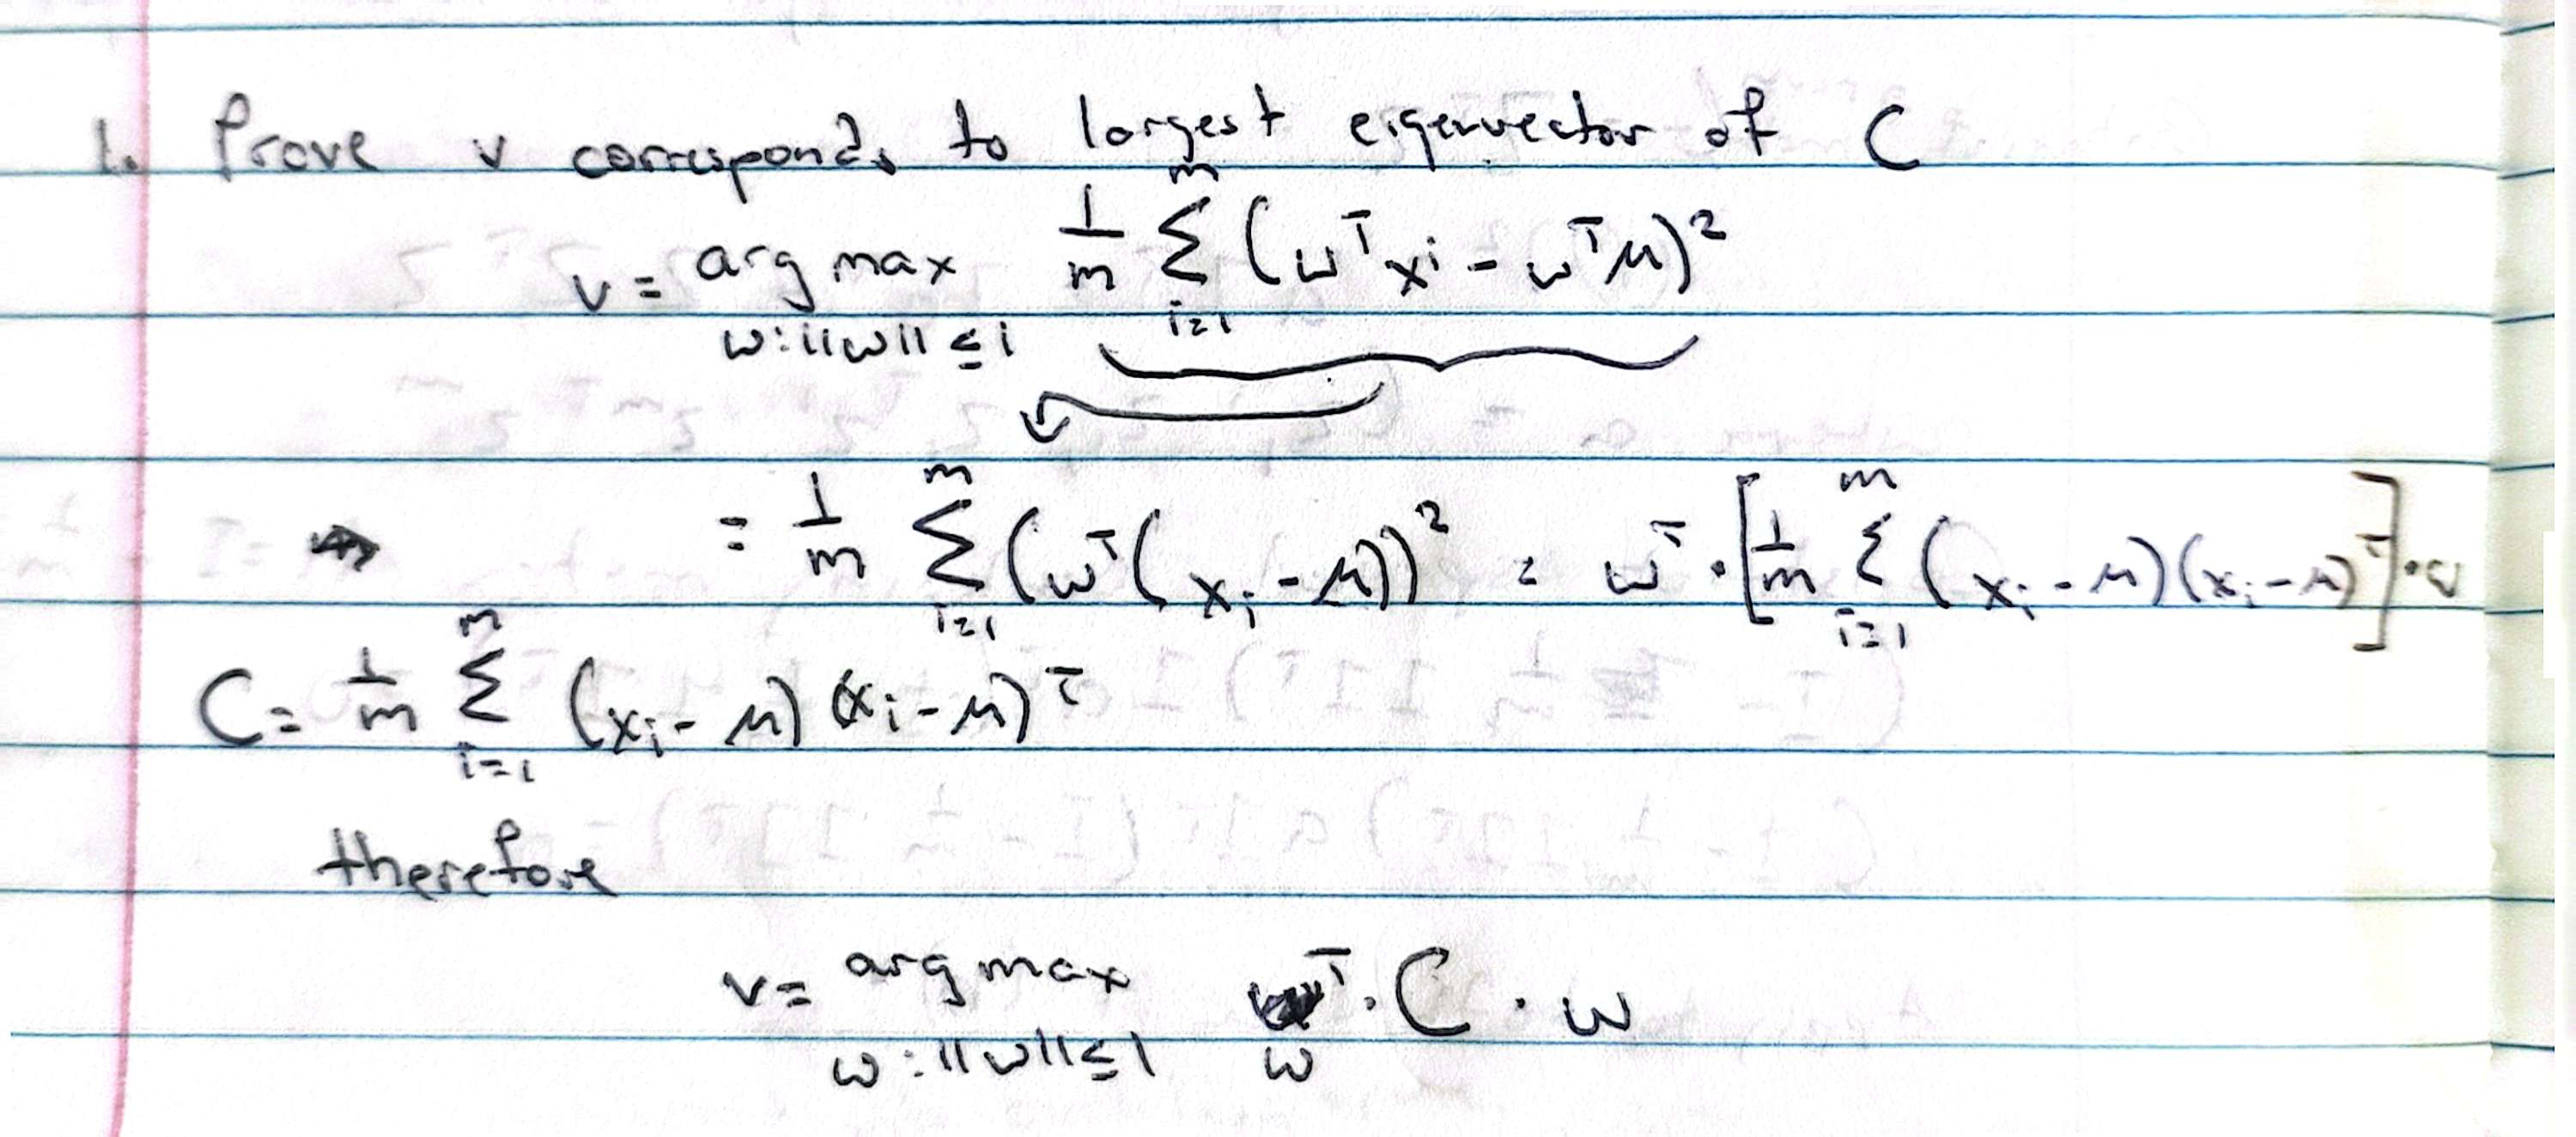 1. Prove v corresponds to largest eigenvector of C
v = arg max_{w:||w|| ≤ 1} 1/m Σ_{i=1}^{m} (w^T x^i - w^T μ)^2
= 1/m Σ_{i=1}^{m} (w^T (x_i - μ))^2 = w^T · [1/m Σ_{i=1}^{m} (x_i - μ)(x_i - μ)^T] · w
C = 1/m Σ_{i=1}^{m} (x_i - μ)(x_i - μ)^T
therefore
v = arg max_{w:||w|| ≤ 1} w^T · C · w